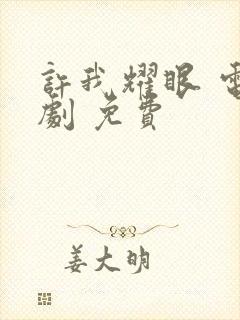 許我耀眼 電
劇 免費
姜大明